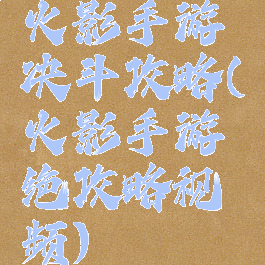 火影手游
决斗攻略(
火影手游
绝攻略视
频)